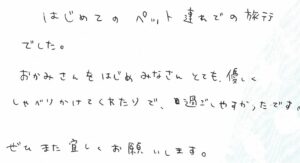 はじめてのペット連れでの旅行
でした。
おかみさんをはじめみなさんとても、優しく
しゃべりかけてくれたりで、過ごしやすかったです。
ぜひまた宜しくお願いします。